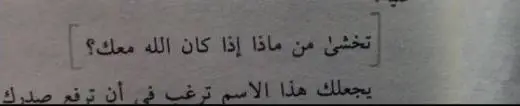 [تخشىٰ من ماذا إذا كان الله معك؟]
يجعلك هذا الاسم ترغب في أن ترفع صدرك